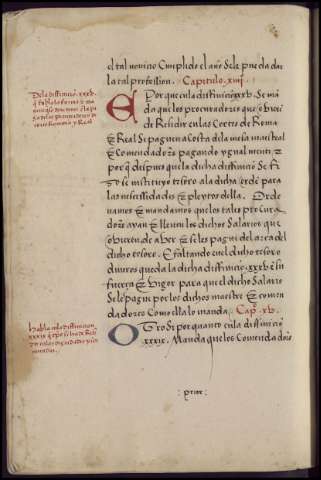 el tal novicio Cumplido el año Sele pueda dar
la tal profession. Capitulo. xiiij.
E Por que en la diffinició xxxv. Se má
da que los procuradores que ovieré
de Residir en las Cortes de Roma
e Real Se paguen a Costa de la mesa maestral
e Comendadores pagando ygual mente; e
por que despues que la dicha diffinició Se fi
zo se instituyo tesoro a la dicha ordé para
las necessidades e pleytos della. Orde
namos e mandamos que los tales procura
dores ayan e lleven los dichos Salarios que
ovieren de aver e se les pague del arca del
dicho tesoro. E faltando en el dicho tesoro
dineros queda la dicha diffinició xxxv é su
fuerça e Vigor para que el dicho Salario
Se le pague por los dichos maestre e comen
dadores Como ella lo manda. Cap. xv.
O Tro Si por quanto en la diffinició
xxxix. Manda que los Comendadores
Dela diffinició. xxxv.
Habla en la diffinicion
xxxix
: prior :